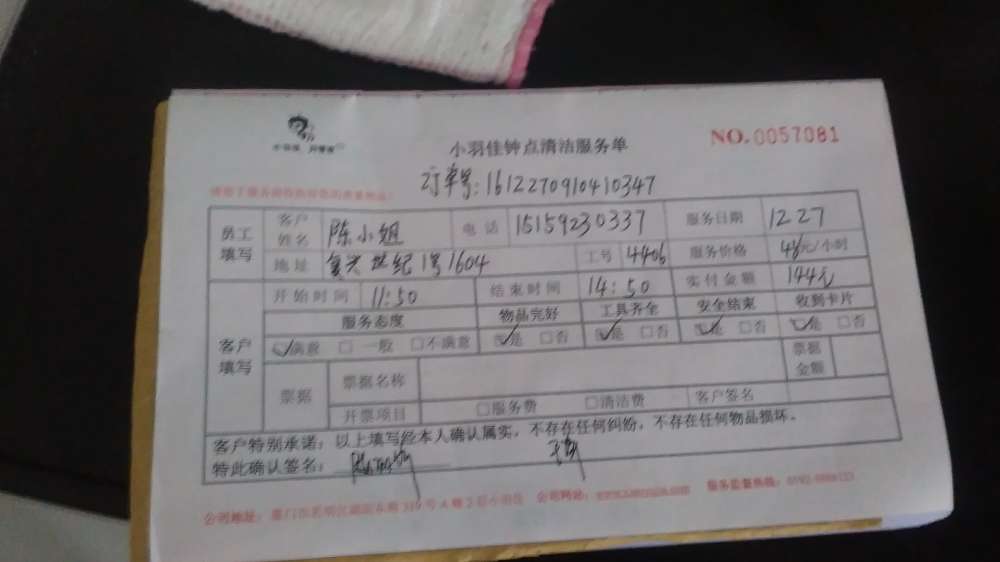 小羽佳钟点清洁服务单
NO.0057081
订单号:1612270910410347
员工填写 客户姓名 陈小姐 电话 15159230337 服务日期 12 27
地址 复兴世纪1号1604 工号 4406 服务价格 48元/小时
客户填写 开始时间 11:50 结束时间 14:50 实付金额 144元
服务态度 物品完好 工具齐全 安全结束 收到卡片
满意 一般 不满意 是 否 是 否 是 否 是 否
票据 票据名称 票据金额
开票项目 服务费 清洁费 客户签名
客户特别承诺:以上填写经本人确认属实,不存在任何纠纷,不存在任何物品损坏。
特此确认签名:
公司地址: 公司网站: 服务监督热线: